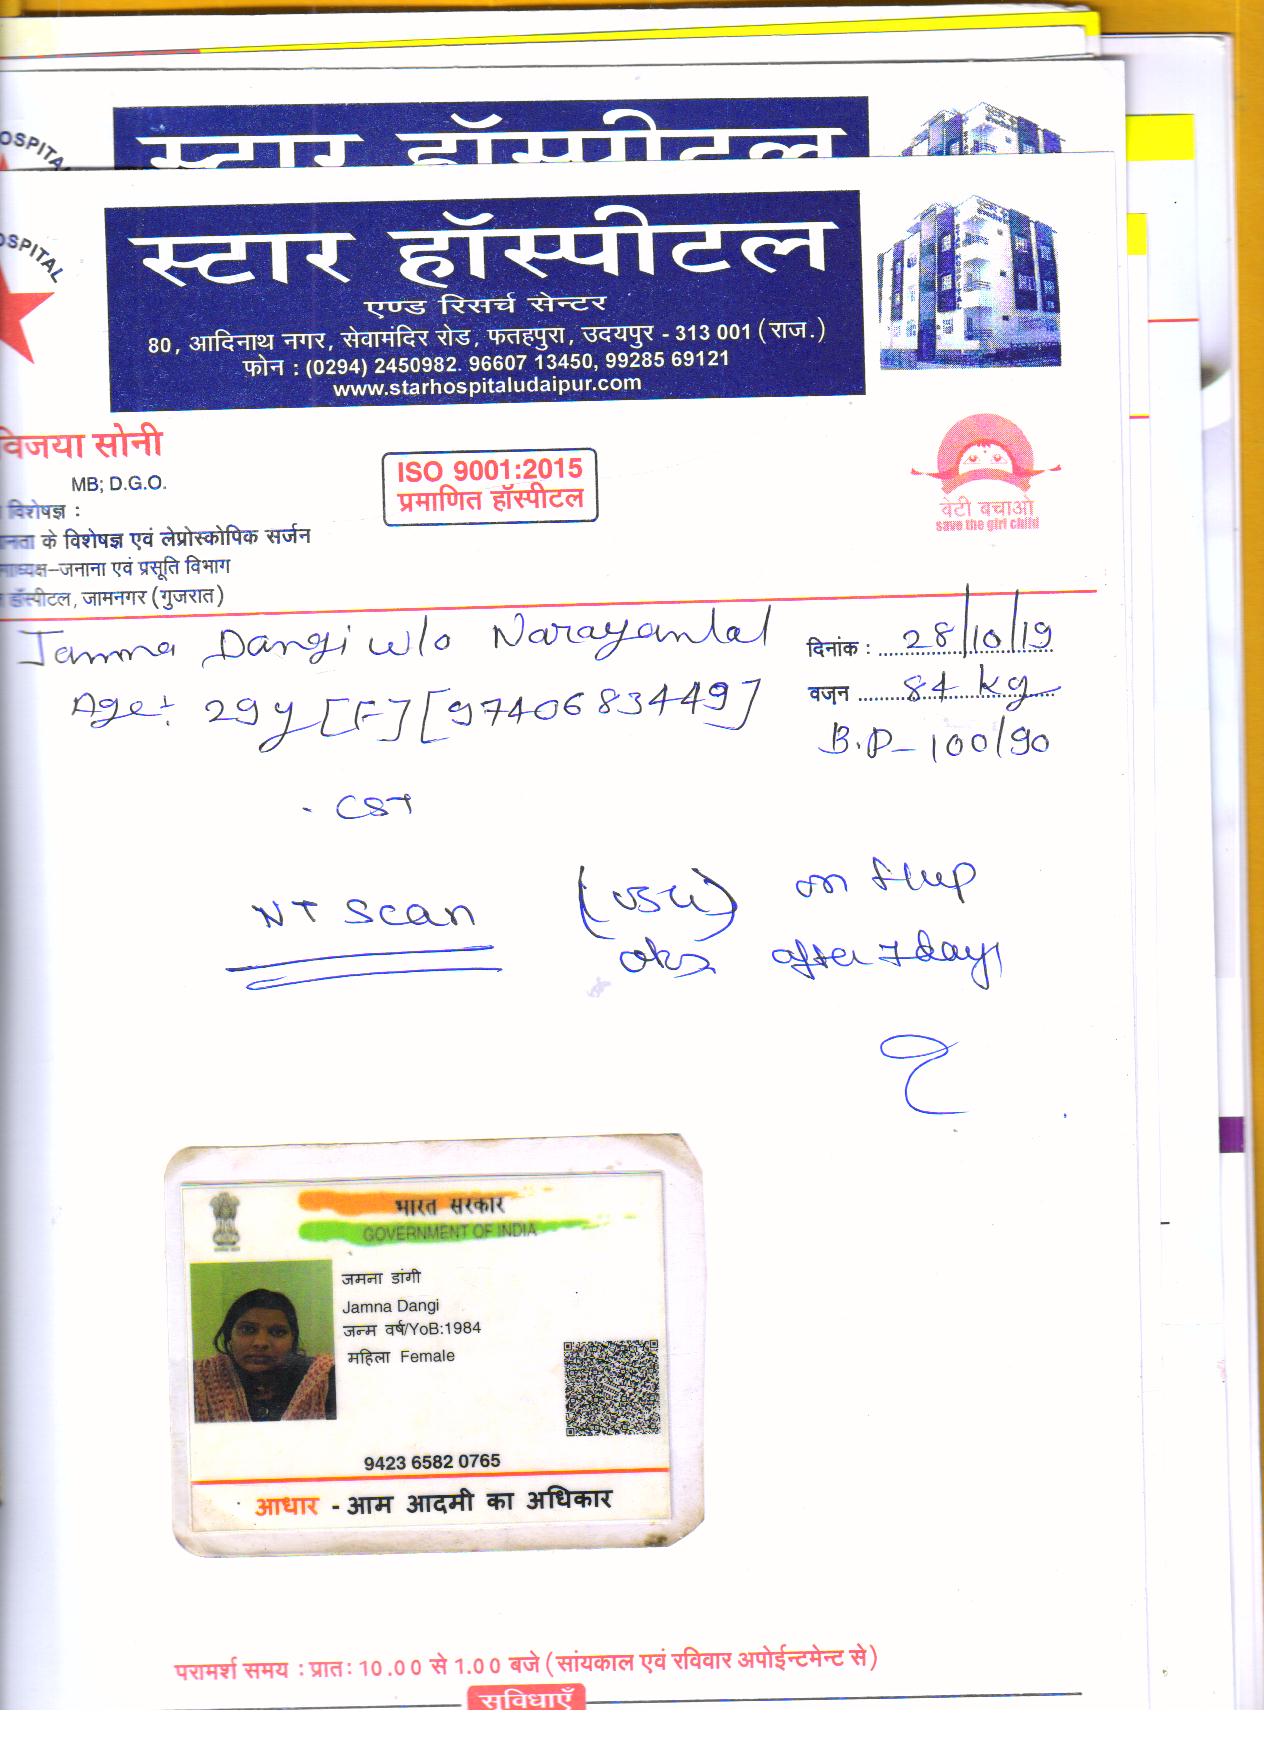 OSPITAL
स्टार हॉस्पीटल
OSPITAL
स्टार हॉस्पीटल
एण्ड रिसर्च सेन्टर
80, आदिनाथ नगर, सेवामंदिर रोड, फतहपुरा, उदयपुर - 313 001 (राज.)
फोन : (0294) 2450982. 96607 13450, 99285 69121
www.starhospitaludaipur.com
विजया सोनी
MB; D.G.O.
विशेषज्ञ :
के विशेषज्ञ एवं लेप्रोस्कोपिक सर्जन
जनाना एवं प्रसूति विभाग
हॉस्पीटल, जामनगर (गुजरात)
ISO 9001:2015
प्रमाणित हॉस्पीटल
बेटी बचाओ
save the girl child
Jamna Dangi w/o Narayanlal
दिनांक : 28/10/19
Age: 29y [F] [9740683449]
वजन 84 kg
B.P- 100/90
- CST
NT Scan
on
after 7 days
भारत सरकार
GOVERNMENT OF INDIA
जमना डांगी
Jamna Dangi
जन्म वर्ष/YoB:1984
महिला Female
9423 6582 0765
आधार - आम आदमी का अधिकार
परामर्श समय : प्रातः 10.00 से 1.00 बजे (सांयकाल एवं रविवार अपोईन्टमेन्ट से)
सुविधाएँ